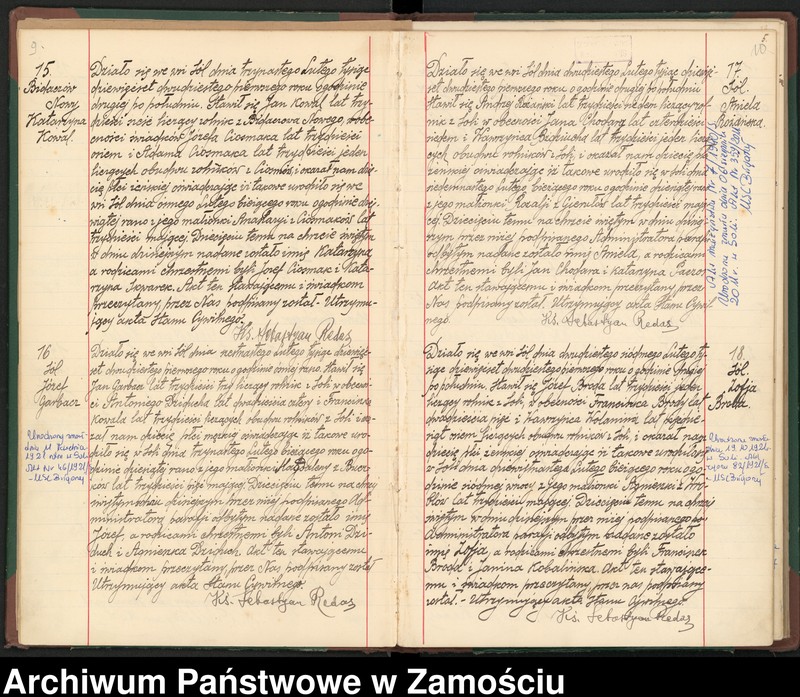 9.
15.
Bidaczów
Nowy
Katarzyna
Kowal.
Działo się we wsi Sól dnia trzynastego Lutego tysiąc
dziewięćset dwudziestego pierwszego roku o godzinie
drugiej po południu. Stawił się Jan Kowal lat trzy-
dzieści sześć liczący rolnik z Bidaczowa Nowego, w obe-
cności świadków Józefa Ciosmaka lat trzydzieści
osiem i Adama Ciosmaka lat trzydzieści jeden
liczących obudwu rolników z Ciosmów, i okazał nam dzie-
cię płci żeńskiej oświadczając iż takowe urodziło się we
wsi Sól dnia ósmego Lutego bieżącego roku o godzinie dzie-
wiątej rano z jego małżonki Anastazji z Ciosmaków lat
trzydzieści mającej. Dziecięciu temu na chrzcie świętym
w dniu dzisiejszym nadane zostało imię Katarzyna
a rodzicami chrzestnemi byli Józef Ciosmak i Kata-
rzyna Skwarek. Akt ten stawającemu i świadkom
przeczytany, przez Nas podpisany został.- Utrzymu-
jący akta Stanu Cywilnego.
Ks. Sebastyan Redas
16
Sól
Józef
Garbacz
Działo się we wsi Sól dnia Lutego tysiąc dziewięć-
set dwudziestego pierwszego roku o godzinie ósmej rano. Stawił się
Jan Garbacz lat trzydzieści trzy liczący rolnik z Soli w obecno-
ści Antoniego Dziducha lat dwadzieścia cztery i Franciszka
Kowala lat trzydzieści liczących obudwu rolników z Soli i oka-
zał nam dziecię płci męzkiej oświadczając iż takowe uro-
dziło się w Soli dnia trzynastego Lutego bieżącego roku o go-
dzinie dziesiątej rano z jego małżonki Magdaleny z
lat trzydzieści mającej. Dziecięciu temu na chrzcie
świętym w dniu dzisiejszym przez niżej podpisanego Ad-
ministratora parafji odbytym nadane zostało imię
Józef, a rodzicami chrzestnemi byli Antoni Dzi-
duch i Agnieszka Dziduch. Akt ten stawającemu
i świadkom przeczytany, przez Nas podpisany został
Utrzymujący akta Stanu Cywilnego.
Ks. Sebastyan Redas
Urodzony zmarł
dnia 11 kwietnia
1921 roku w Soli
Akt Nr 46/1921
- USC Biłgoraj
10
17.
Sól.
Aniela
Różańska.
Działo się we wsi Sól dnia dwudziestego Lutego tysiąc dziewięć-
set dwudziestego pierwszego roku o godzinie drugiej po południu
Stawił się Andrzej Różański lat trzydzieści liczący rol-
nik z Soli w obecności Jana Chodara lat czterdzieści
i Wawrzyńca lat trzydzieści jeden licz-
ących obudwu rolników z Soli, i okazał nam dziecię płci
żeńskiej oświadczając iż takowe urodziło się w Soli dnia
Lutego bieżącego roku o godzinie
z jego małżonki Rozalji z lat trzydzieści mają-
cej. Dziecięciu temu na chrzcie świętym w dniu dzisiej-
szym przez niżej podpisanego Administratora parafji
odbytym nadane zostało imię Aniela, a rodzicami
chrzestnemi byli Jan Chodara i Katarzyna
Akt ten stawającemu i świadkom przeczytany przez
Nas podpisany został. Utrzymujący akta Stanu Cywil-
nego.
Ks. Sebastyan Redas
Akt małżeństwa Nr
Urodzona zmarła dnia
20 w Soli. Akt Nr
USC Biłgoraj
18.
Sól.
Zofja
Broda.
Działo się we wsi Sól dnia dwudziestego siódmego Lutego ty-
siąc dziewięćset dwudziestego pierwszego roku o godzinie drugiej
po południu. Stawił się Józef Broda lat trzydzieści jeden
liczący rolnik z Soli, w obecności Franciszka Brody lat
dwadzieścia pięć i Wawrzyńca Kołanina lat
osiem liczących obudwu rolników z Soli, i okazał nam
dziecię płci żeńskiej oświadczając iż takowe urodziło się
w Soli dnia dwudziestego Lutego bieżącego roku o go-
dzinie siódmej rano z jego małżonki Agnieszki z
lat trzydzieści mającej. Dziecięciu temu na chrzcie
świętym w dniu dzisiejszym przez niżej podpisanego
Administratora parafji odbytym nadane zostało
imię Zofja, a rodzicami chrzestnemi byli Franciszek
Broda i Janina Kobalinska. Akt ten stawające-
mu i świadkom przeczytany, przez nas podpisany
został.- Utrzymujący akta Stanu Cywilnego.
Ks. Sebastyan Redas
Urodzona zmarła
dnia 19.10.1921
w Soli. Akt
zgonu 92/1921
- USC Biłgoraj
Archiwum Państwowe w Zamościu